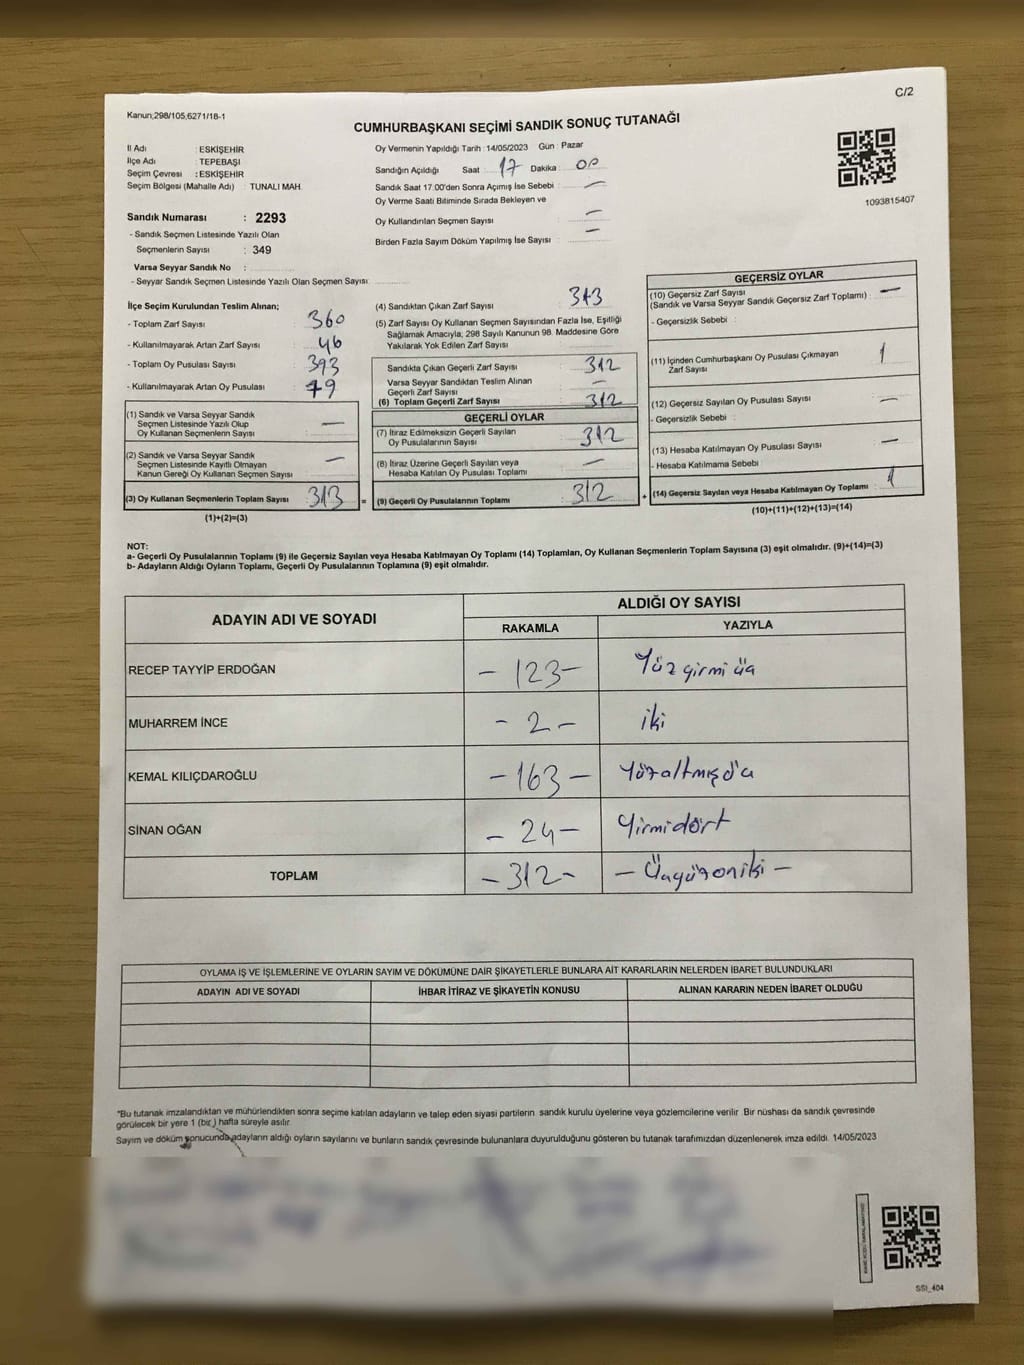 C/2
Kanun;298/105,6271/18-1
CUMHURBAŞKANI SEÇİMİ SANDIK SONUÇ TUTANAĞI
İl Adı : ESKİŞEHİR
İlçe Adı : TEPEBAŞI
Seçim Çevresi : ESKİŞEHİR
Seçim Bölgesi (Mahalle Adı) : TUNALI MAH.
Sandık Numarası : 2293
- Sandık Seçmen Listesinde Yazılı Olan
Seçmenlerin Sayısı : 349
Varsa Seyyar Sandık No :
- Seyyar Sandık Seçmen Listesinde Yazılı Olan Seçmen Sayısı :
Oy Vermenin Yapıldığı Tarih : 14/05/2023 Gün : Pazar
Sandığın Açıldığı Saat 17 Dakika : 00
Sandık Saat 17.00'den Sonra Açımış İse Sebebi : —
Oy Verme Saati Bitiminde Sırada Bekleyen ve
Oy Kullandırılan Seçmen Sayısı : —
Birden Fazla Sayım Döküm Yapılmış İse Sayısı : —
1093815407
İlçe Seçim Kurulundan Teslim Alınan;
- Toplam Zarf Sayısı : 360
- Kullanılmayarak Artan Zarf Sayısı : 46
- Toplam Oy Pusulası Sayısı : 393
- Kullanılmayarak Artan Oy Pusulası : 79
(1) Sandık ve Varsa Seyyar Sandık
Seçmen Listesinde Yazılı Olup
Oy Kullanan Seçmenlerin Sayısı : —
(2) Sandık ve Varsa Seyyar Sandık
Seçmen Listesinde Kayıtlı Olmayan
Kanun Gereği Oy Kullanan Seçmen Sayısı : —
(3) Oy Kullanan Seçmenlerin Toplam Sayısı : 313 =
(1)+(2)=(3)
(4) Sandıktan Çıkan Zarf Sayısı : 313
(5) Zarf Sayısı Oy Kullanan Seçmen Sayısından Fazla İse, Eşitliği
Sağlamak Amacıyla; 298 Sayılı Kanunun 98. Maddesine Göre
Yakılarak Yok Edilen Zarf Sayısı :
Sandıkta Çıkan Geçerli Zarf Sayısı : 312
Varsa Seyyar Sandıktan Teslim Alınan
Geçerli Zarf Sayısı : —
(6) Toplam Geçerli Zarf Sayısı : 312
GEÇERLİ OYLAR
(7) İtiraz Edilmeksizin Geçerli Sayılan
Oy Pusulalarının Sayısı : 312
(8) İtiraz Üzerine Geçerli Sayılan veya
Hesaba Katılan Oy Pusulası Toplamı : —
(9) Geçerli Oy Pusulalarının Toplamı : 312 +
GEÇERSİZ OYLAR
(10) Geçersiz Zarf Sayısı
(Sandık ve Varsa Seyyar Sandık Geçersiz Zarf Toplamı) : —
- Geçersizlik Sebebi :
(11) İçinden Cumhurbaşkanı Oy Pusulası Çıkmayan
Zarf Sayısı : 1
(12) Geçersiz Sayılan Oy Pusulası Sayısı : —
- Geçersizlik Sebebi :
(13) Hesaba Katılmayan Oy Pusulası Sayısı : —
- Hesaba Katılmama Sebebi :
(14) Geçersiz Sayılan veya Hesaba Katılmayan Oy Toplamı : 1
(10)+(11)+(12)+(13)=(14)
NOT:
a- Geçerli Oy Pusulalarının Toplamı (9) ile Geçersiz Sayılan veya Hesaba Katılmayan Oy Toplamı (14) Toplamları, Oy Kullanan Seçmenlerin Toplam Sayısına (3) eşit olmalıdır. (9)+(14)=(3)
b- Adayların Aldığı Oyların Toplamı, Geçerli Oy Pusulalarının Toplamına (9) eşit olmalıdır.
ADAYIN ADI VE SOYADI ALDIĞI OY SAYISI
RAKAMLA YAZIYLA
RECEP TAYYİP ERDOĞAN - 123 - Yüzyirmiüç
MUHARREM İNCE - 2 - iki
KEMAL KILIÇDAROĞLU - 163 - Yüzaltmışüç
SİNAN OĞAN - 24 - Yirmidört
TOPLAM - 312 - - Üçyüzoniki -
OYLAMA İŞ VE İŞLEMLERİNE VE OYLARIN SAYIM VE DÖKÜMÜNE DAİR ŞİKAYETLERLE BUNLARA AİT KARARLARIN NELERDEN İBARET BULUNDUKLARI
ADAYIN ADI VE SOYADI İHBAR İTİRAZ VE ŞİKAYETİN KONUSU ALINAN KARARIN NEDEN İBARET OLDUĞU
*Bu tutanak imzalandıktan ve mühürlendikten sonra seçime katılan adayların ve talep eden siyasi partilerin sandık kurulu üyelerine veya gözlemcilerine verilir. Bir nüshası da sandık çevresinde
görülecek bir yere 1 (bir.) hafta süreyle asılır.
Sayım ve döküm sonucunda adayların aldığı oyların sayılarını ve bunların sandık çevresinde bulunanlara duyurulduğunu gösteren bu tutanak tarafımızdan düzenlenerek imza edildi. 14/05/2023
SSI_404